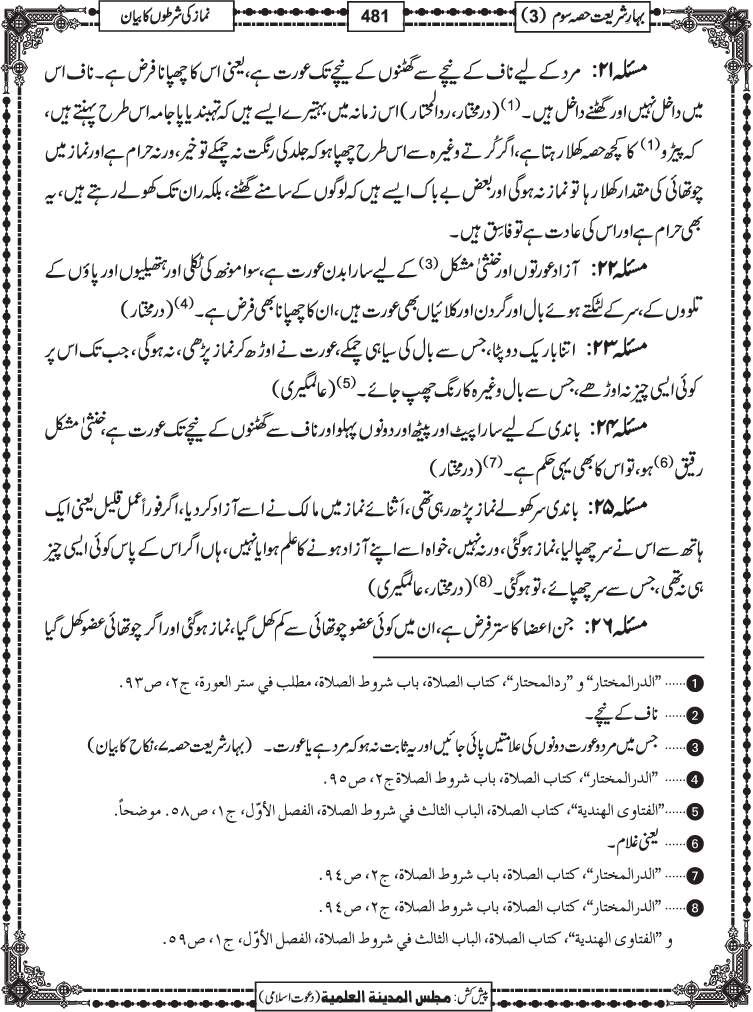 بہارِ شریعت حصہ سوم (3)
481
نماز کی شرطوں کا بیان
مسئلہ ۲۱: مرد کے لیے ناف کے نیچے سے گھٹنوں کے نیچے تک عورت ہے، یعنی اس کا چھپانا فرض ہے۔ ناف اس
میں داخل نہیں اور گھٹنے داخل ہیں۔ (1) (درمختار، ردالمحتار) اس زمانہ میں بہتیرے ایسے ہیں کہ تہبند یا پاجامہ اس طرح پہنتے ہیں،
کہ پیڑو (1) کا کچھ حصہ کھلا رہتا ہے، اگر کُرتے وغیرہ سے اس طرح چھپا ہو کہ جلد کی رنگت نہ چمکے تو خیر، ورنہ حرام ہے اور نماز میں
چوتھائی کی مقدار کھلا رہا تو نماز نہ ہوگی اور بعض بے باک ایسے ہیں کہ لوگوں کے سامنے گھٹنے، بلکہ ران تک کھولے رہتے ہیں، یہ
بھی حرام ہے اور اس کی عادت ہے تو فاسِق ہیں۔
مسئلہ ۲۲: آزاد عورتوں اور خنثیٰ مشکل (3) کے لیے سارا بدن عورت ہے، سوا مونھ کی ٹکلی اور ہتھیلیوں اور پاؤں کے
تلووں کے، سر کے لٹکتے ہوئے بال اور گردن اور کلائیاں بھی عورت ہیں، ان کا چھپانا بھی فرض ہے۔ (4) (درمختار)
مسئلہ ۲۳: اتنا باریک دوپٹا، جس سے بال کی سیاہی چمکے، عورت نے اوڑھ کر نماز پڑھی، نہ ہوگی، جب تک اس پر
کوئی ایسی چیز نہ اوڑھے، جس سے بال وغیرہ کا رنگ چھپ جائے۔ (5) (عالمگیری)
مسئلہ ۲۴: باندی کے لیے سارا پیٹ اور پیٹھ اور دونوں پہلو اور ناف سے گھٹنوں کے نیچے تک عورت ہے، خنثیٰ مشکل
رقیق (6) ہو، تو اس کا بھی یہی حکم ہے۔ (7) (درمختار)
مسئلہ ۲۵: باندی سر کھولے نماز پڑھ رہی تھی، اَثنائے نماز میں مالک نے اسے آزاد کر دیا، اگر فوراً عمل قلیل یعنی ایک
ہاتھ سے اس نے سر چھپا لیا، نماز ہوگئی، ورنہ نہیں، خواہ اسے اپنے آزاد ہونے کا علم ہوا یا نہیں، ہاں اگر اس کے پاس کوئی ایسی چیز
ہی نہ تھی، جس سے سر چھپائے، تو ہوگئی۔ (8) (درمختار، عالمگیری)
مسئلہ ۲۶: جن اعضا کا ستر فرض ہے، ان میں کوئی عضو چوتھائی سے کم کھل گیا، نماز ہوگئی اور اگر چوتھائی عضو کھل گیا
1 ...... "الدرالمختار" و "ردالمحتار"، كتاب الصلاة، باب شروط الصلاة، مطلب في ستر العورة، ج٢، ص٩٣.
2 ...... ناف کے نیچے۔
3 ...... جس میں مرد و عورت دونوں کی علامتیں پائی جائیں اور یہ ثابت نہ ہو کہ مرد ہے یا عورت۔ (بہار شریعت حصہ ۷، نکاح کا بیان)
4 ...... "الدرالمختار"، كتاب الصلاة، باب شروط الصلاة ج٢، ص٩٥.
5 ......"الفتاوى الهندية"، كتاب الصلاة، الباب الثالث في شروط الصلاة، الفصل الأوّل، ج١، ص٥٨. موضحاً.
6 ...... یعنی غلام۔
7 ...... "الدرالمختار"، كتاب الصلاة، باب شروط الصلاة، ج٢، ص٩٤.
8 ...... "الدرالمختار"، كتاب الصلاة، باب شروط الصلاة، ج٢، ص٩٤.
و "الفتاوى الهندية"، كتاب الصلاة، الباب الثالث في شروط الصلاة، الفصل الأوّل، ج١، ص٥٩.
پیش کش: مجلس المدينة العلمية (دعوت اسلامی)